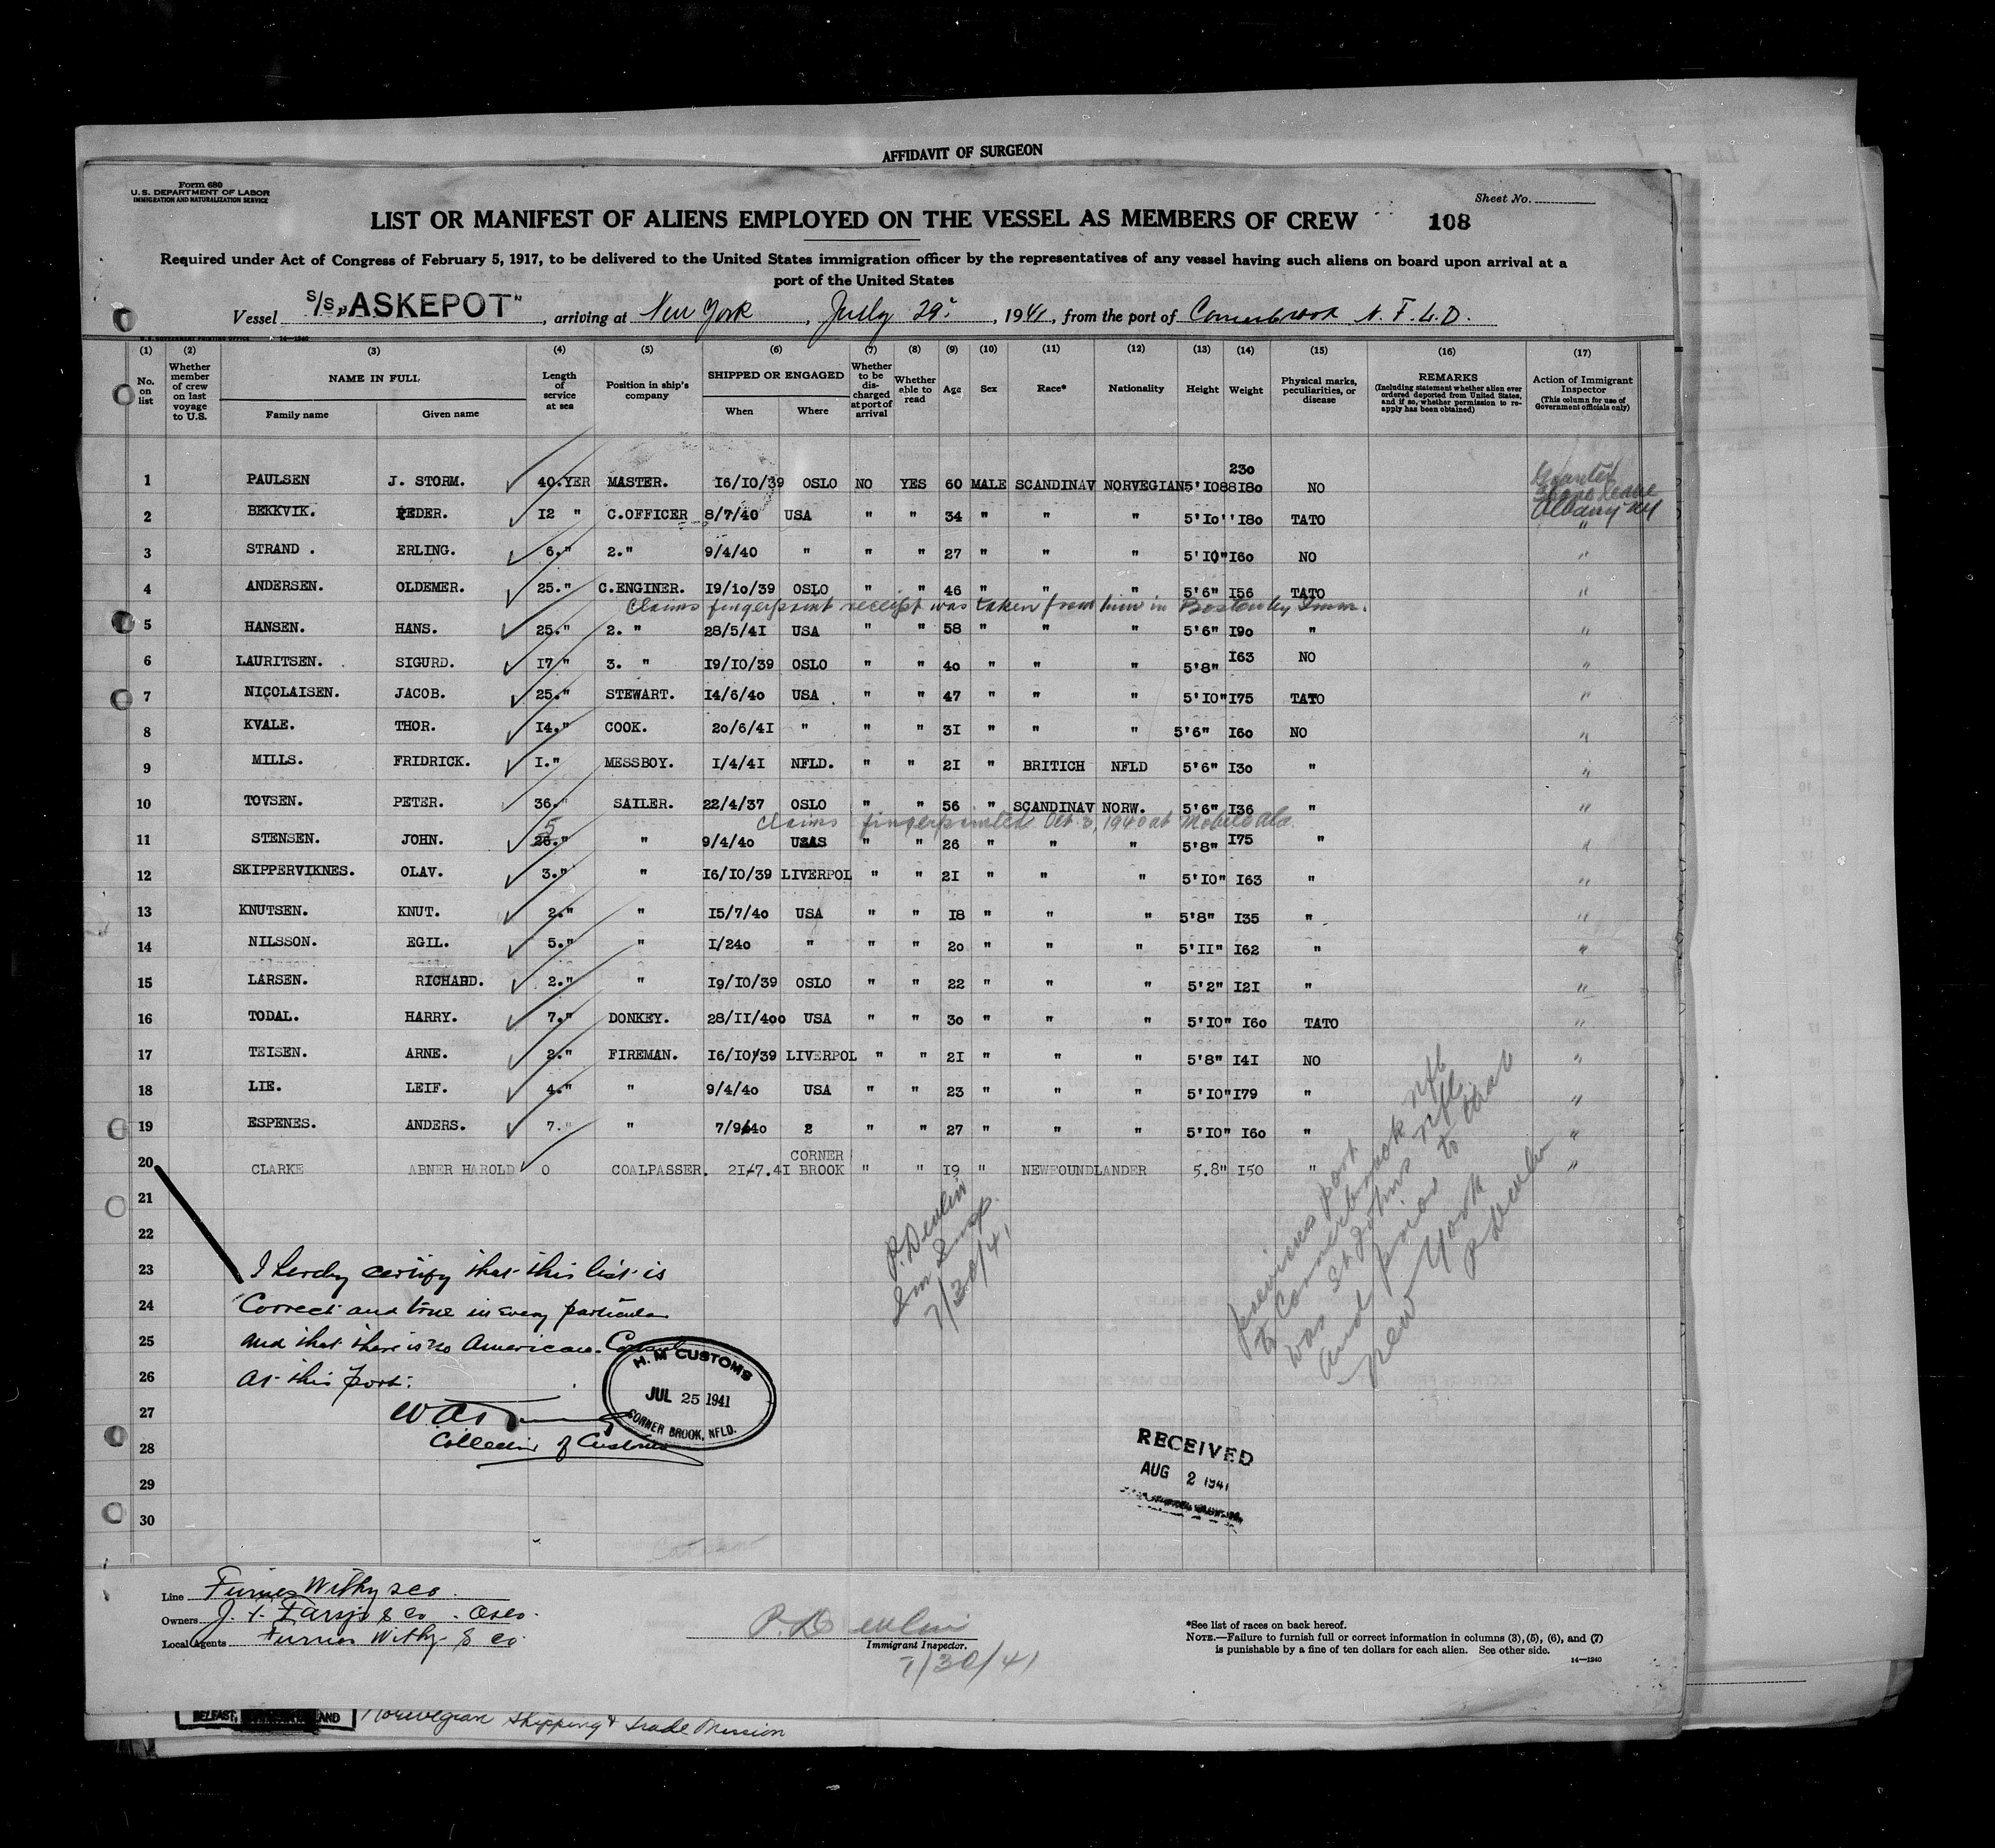 AFFIDAVIT OF SURGEON
Form 680
U. S. DEPARTMENT OF LABOR
IMMIGRATION AND NATURALIZATION SERVICE
Sheet No.
LIST OR MANIFEST OF ALIENS EMPLOYED ON THE VESSEL AS MEMBERS OF CREW 108
Required under Act of Congress of February 5, 1917, to be delivered to the United States immigration officer by the representatives of any vessel having such aliens on board upon arrival at a
port of the United States
Vessel S/S „ASKEPOT", arriving at New York, July 29, 1941, from the port of Cornerbrook N.F.L.D.
U.S. GOVERNMENT PRINTING OFFICE 14—1240
(1) (2) (3) (4) (5) (6) (7) (8) (9) (10) (11) (12) (13) (14) (15) (16) (17)
No. on list Whether member of crew on last voyage to U.S. NAME IN FULL Family name Given name Length of service at sea Position in ship's company SHIPPED OR ENGAGED When Where Whether to be discharged at port of arrival Whether able to read Age Sex Race* Nationality Height Weight Physical marks, peculiarities, or disease REMARKS (Including statement whether alien ever ordered deported from United States, and if so, whether permission to reapply has been obtained) Action of Immigrant Inspector (This column for use of Government officials only)
230
1 PAULSEN J. STORM. 40.YER MASTER. 16/10/39 OSLO NO YES 60 MALE SCANDINAV NORWEGIAN 5'10 180 NO Granted Shore Leave Albany NY
2 BEKKVIK. PEDER. 12 " C.OFFICER 8/7/40 USA " " 34 " " " 5'10'' 180 TATO "
3 STRAND . ERLING. 6." 2." 9/4/40 " " " 27 " " " 5'10" 160 NO "
4 ANDERSEN. OLDEMER. 25." C.ENGINER. 19/10/39 OSLO " " 46 " " " 5'6" 156 TATO "
Claims fingerprint receipt was taken from him in Boston by Imm.
5 HANSEN. HANS. 25." 2. " 28/5/41 USA " " 58 " " " 5'6" 190 " "
6 LAURITSEN. SIGURD. 17 " 3. " 19/10/39 OSLO " " 40 " " " 5'8" 163 NO "
7 NICOLAISEN. JACOB. 25." STEWART. 14/6/40 USA " " 47 " " " 5'10" 175 TATO "
8 KVALE. THOR. 14." COOK. 20/6/41 " " " 31 " " " 5'6" 160 NO "
9 MILLS. FRIDRICK. 1." MESSBOY. 1/4/41 NFLD. " " 21 " BRITICH NFLD 5'6" 130 " "
10 TOVSEN. PETER. 36." SAILER. 22/4/37 OSLO " " 56 " SCANDINAV NORW. 5'6" 136 " "
Claims fingerprinted Oct 3, 1940 at Mobile Ala.
5
11 STENSEN. JOHN. 26." " 9/4/40 USA " " 26 " " " 5'8" 175 " "
12 SKIPPERVIKNES. OLAV. 3." " 16/10/39 LIVERPOL " " 21 " " " 5'10" 163 " "
13 KNUTSEN. KNUT. 2." " 15/7/40 USA " " 18 " " " 5'8" 135 " "
14 NILSSON. EGIL. 5." " 1/240 " " " 20 " " " 5'11" 162 " "
15 LARSEN. RICHARD. 2." " 19/10/39 OSLO " " 22 " " " 5'2" 121 " "
16 TODAL. HARRY. 7." DONKEY. 28/11/400 USA " " 30 " " " 5'10" 160 TATO "
17 TEISEN. ARNE. 2." FIREMAN. 16/10/39 LIVERPOL " " 21 " " " 5'8" 141 NO "
18 LIE. LEIF. 4." " 9/4/40 USA " " 23 " " " 5'10" 179 " "
19 ESPENES. ANDERS. 7." " 7/9/40 2 " " 27 " " " 5'10" 160 " "
20 CLARKE ABNER HAROLD 0 COALPASSER. 21-7.41 CORNER BROOK " " 19 " NEWFOUNDLANDER 5.8" 150 " "
21
22
23
24
25
26
27
28
29
30
I hereby certify that this list is
Correct and true in every particular
and that there is no American Consul
at this port.
Collector of Customs
H. M CUSTOMS
JUL 25 1941
CORNER BROOK, NFLD.
P. Devlin
Im Insp.
7/30/41
previous port
to Cornerbrook Nfl
was St Johns Nfl
and prior to that
New York
P Devlin
RECEIVED
AUG 2 1941
Line Furness Withy & Co.
Owners & Co. Oslo.
Local Agents Furness Withy & Co.
P. Devlin
Immigrant Inspector.
7/30/41
*See list of races on back hereof.
NOTE.—Failure to furnish full or correct information in columns (3), (5), (6), and (7)
is punishable by a fine of ten dollars for each alien. See other side.
14—1240
BELFAST,
Norwegian Shipping & Trade Mission